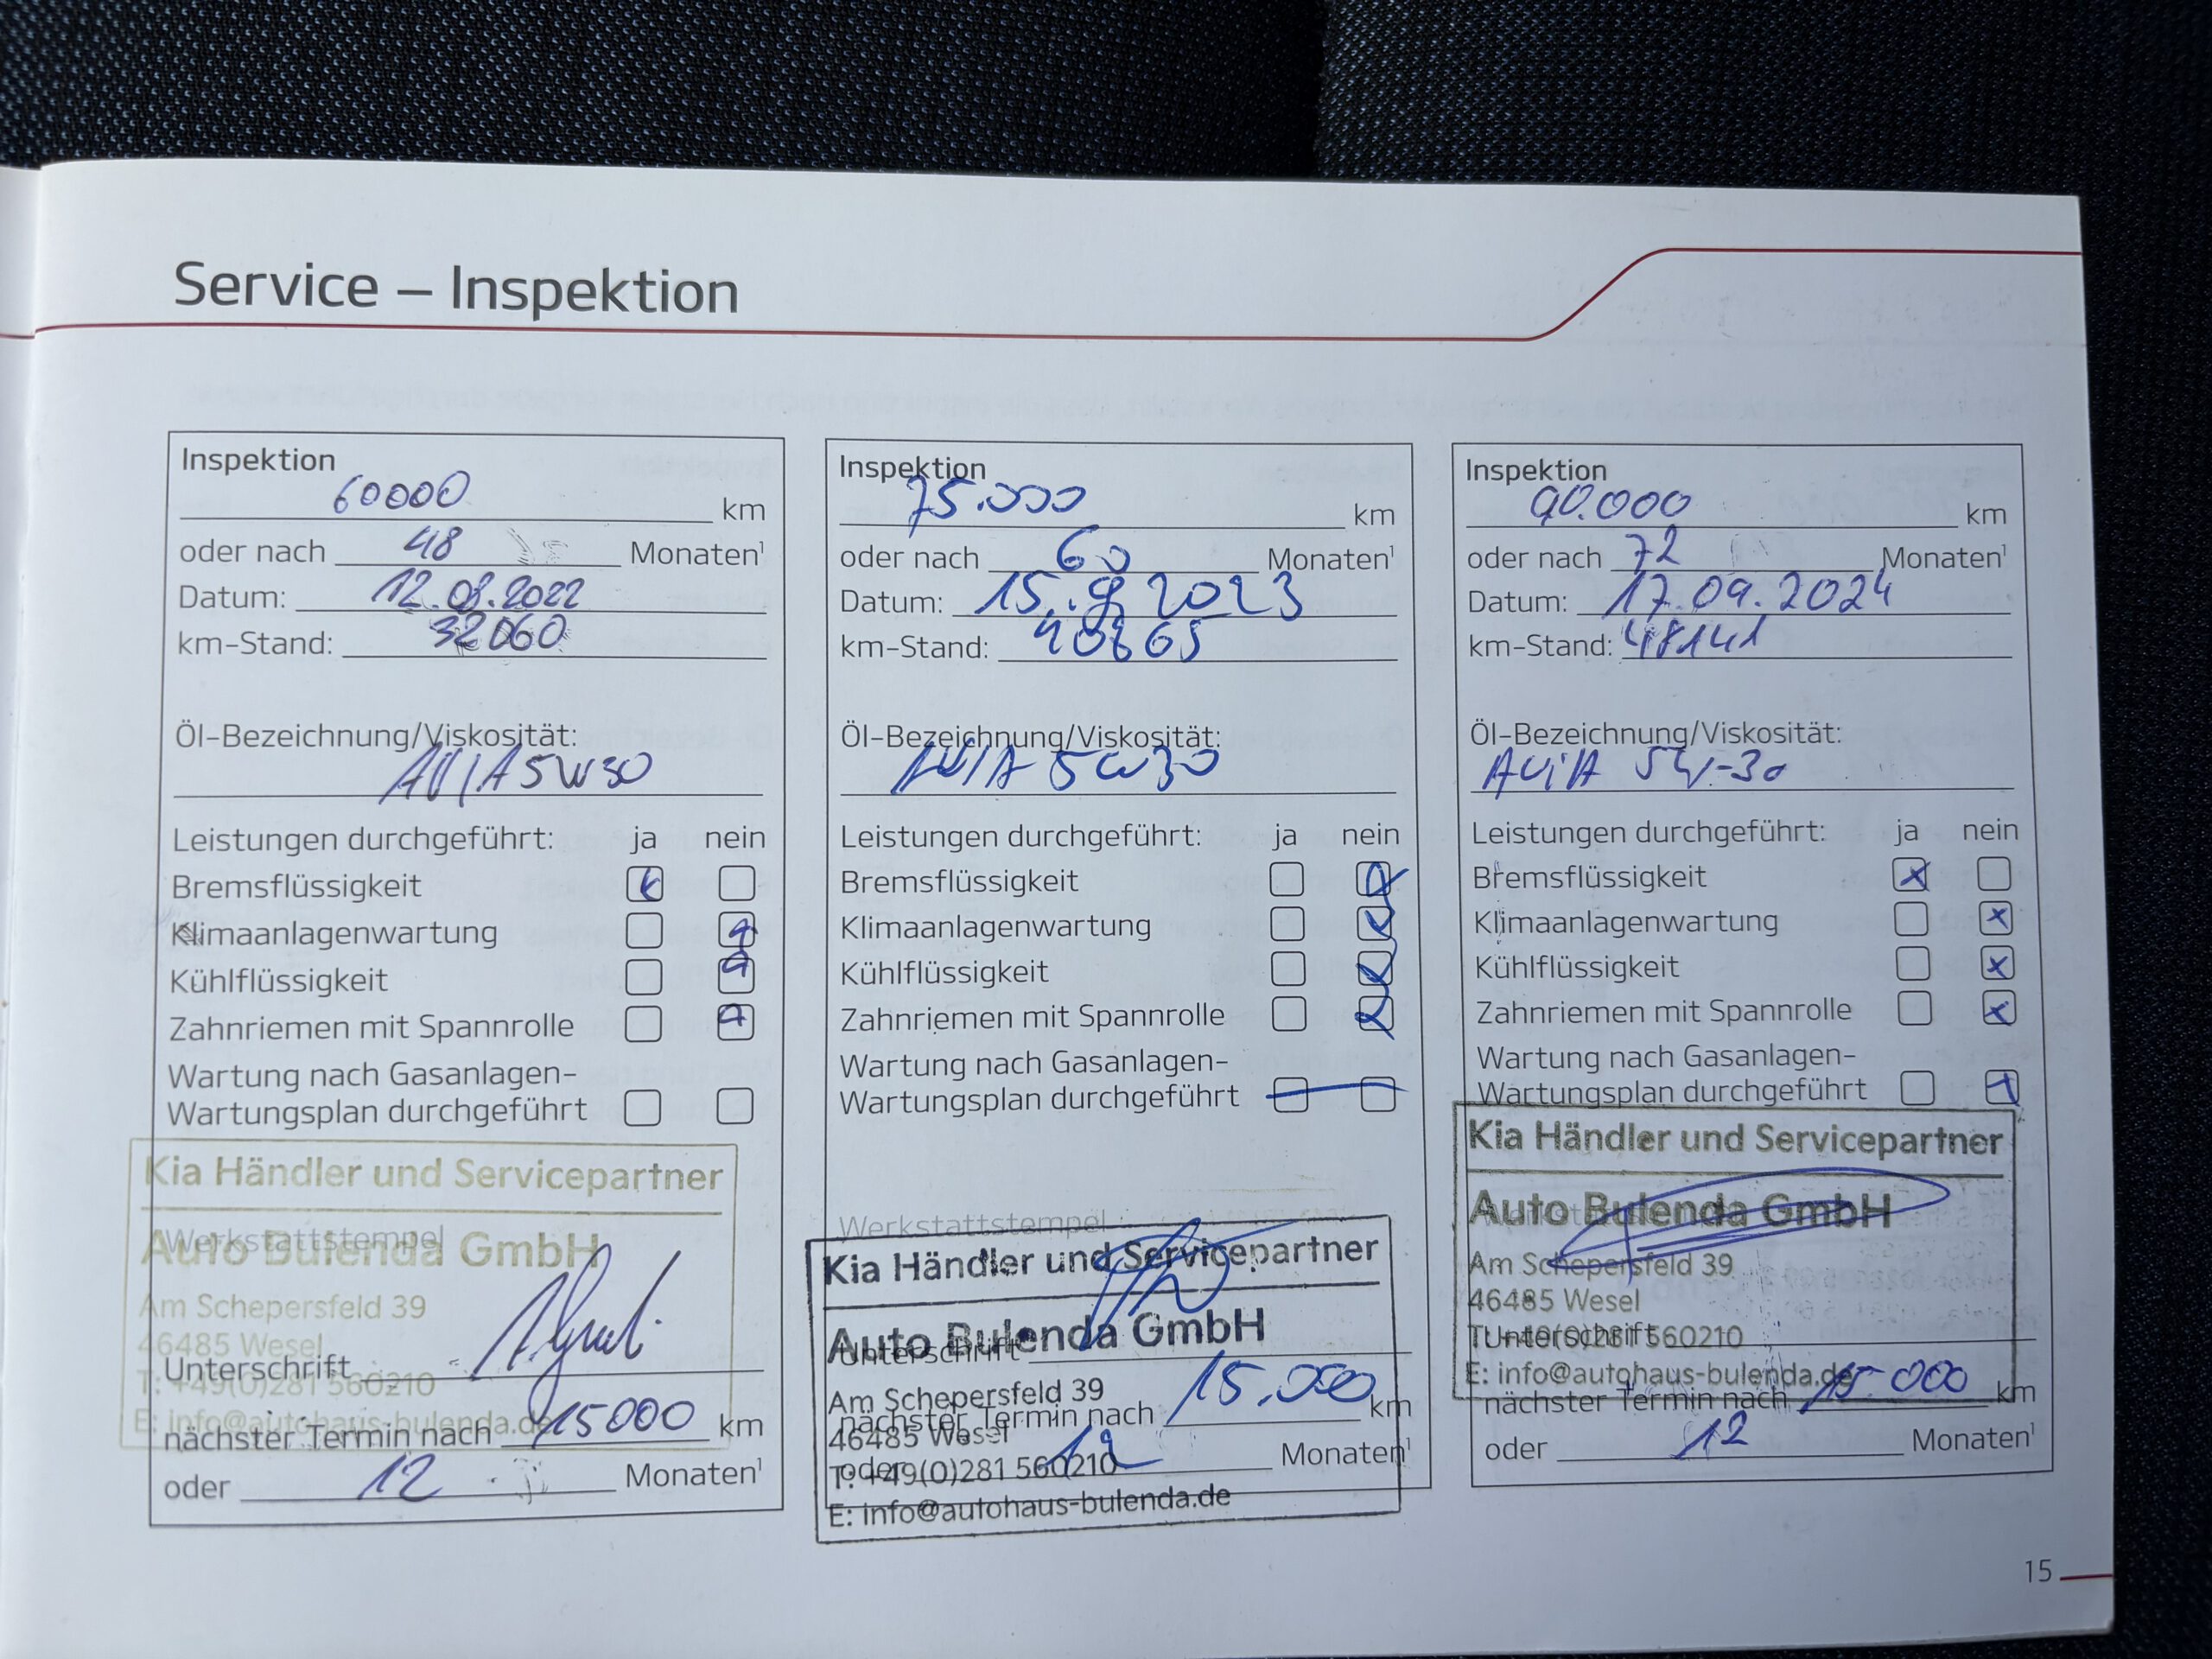 Service – Inspektion
Inspektion
60000 km
oder nach 48 Monaten¹
Datum: 12.08.2022
km-Stand: 32060
Öl-Bezeichnung/Viskosität:
AVIA 5W30
Leistungen durchgeführt: ja nein
Bremsflüssigkeit
Klimaanlagenwartung
Kühlflüssigkeit
Zahnriemen mit Spannrolle
Wartung nach Gasanlagen-
Wartungsplan durchgeführt
Kia Händler und Servicepartner
Werkstattstempel
Auto Bulenda GmbH
Am Schepersfeld 39
46485 Wesel
Unterschrift
T: +49(0)281 560210
E: info@autohaus-bulenda.de
nächster Termin nach 15000 km
oder 12 Monaten¹
Inspektion
75.000 km
oder nach 60 Monaten¹
Datum: 15.9 2023
km-Stand: 40865
Öl-Bezeichnung/Viskosität:
AVIA 5W30
Leistungen durchgeführt: ja nein
Bremsflüssigkeit
Klimaanlagenwartung
Kühlflüssigkeit
Zahnriemen mit Spannrolle
Wartung nach Gasanlagen-
Wartungsplan durchgeführt
Werkstattstempel
Kia Händler und Servicepartner
Auto Bulenda GmbH
Unterschrift
Am Schepersfeld 39
nächster Termin nach 15.000 km
46485 Wesel
oder 12 Monaten¹
T: +49(0)281 560210
E: info@autohaus-bulenda.de
Inspektion
90.000 km
oder nach 72 Monaten¹
Datum: 17.09.2024
km-Stand: 48141
Öl-Bezeichnung/Viskosität:
AVIA 5W-30
Leistungen durchgeführt: ja nein
Bremsflüssigkeit
Klimaanlagenwartung
Kühlflüssigkeit
Zahnriemen mit Spannrolle
Wartung nach Gasanlagen-
Wartungsplan durchgeführt
Kia Händler und Servicepartner
Auto Bulenda GmbH
Am Schepersfeld 39
46485 Wesel
T: +49(0)281 560210
Unterschrift
E: info@autohaus-bulenda.de
nächster Termin nach 15.000 km
oder 12 Monaten¹
15